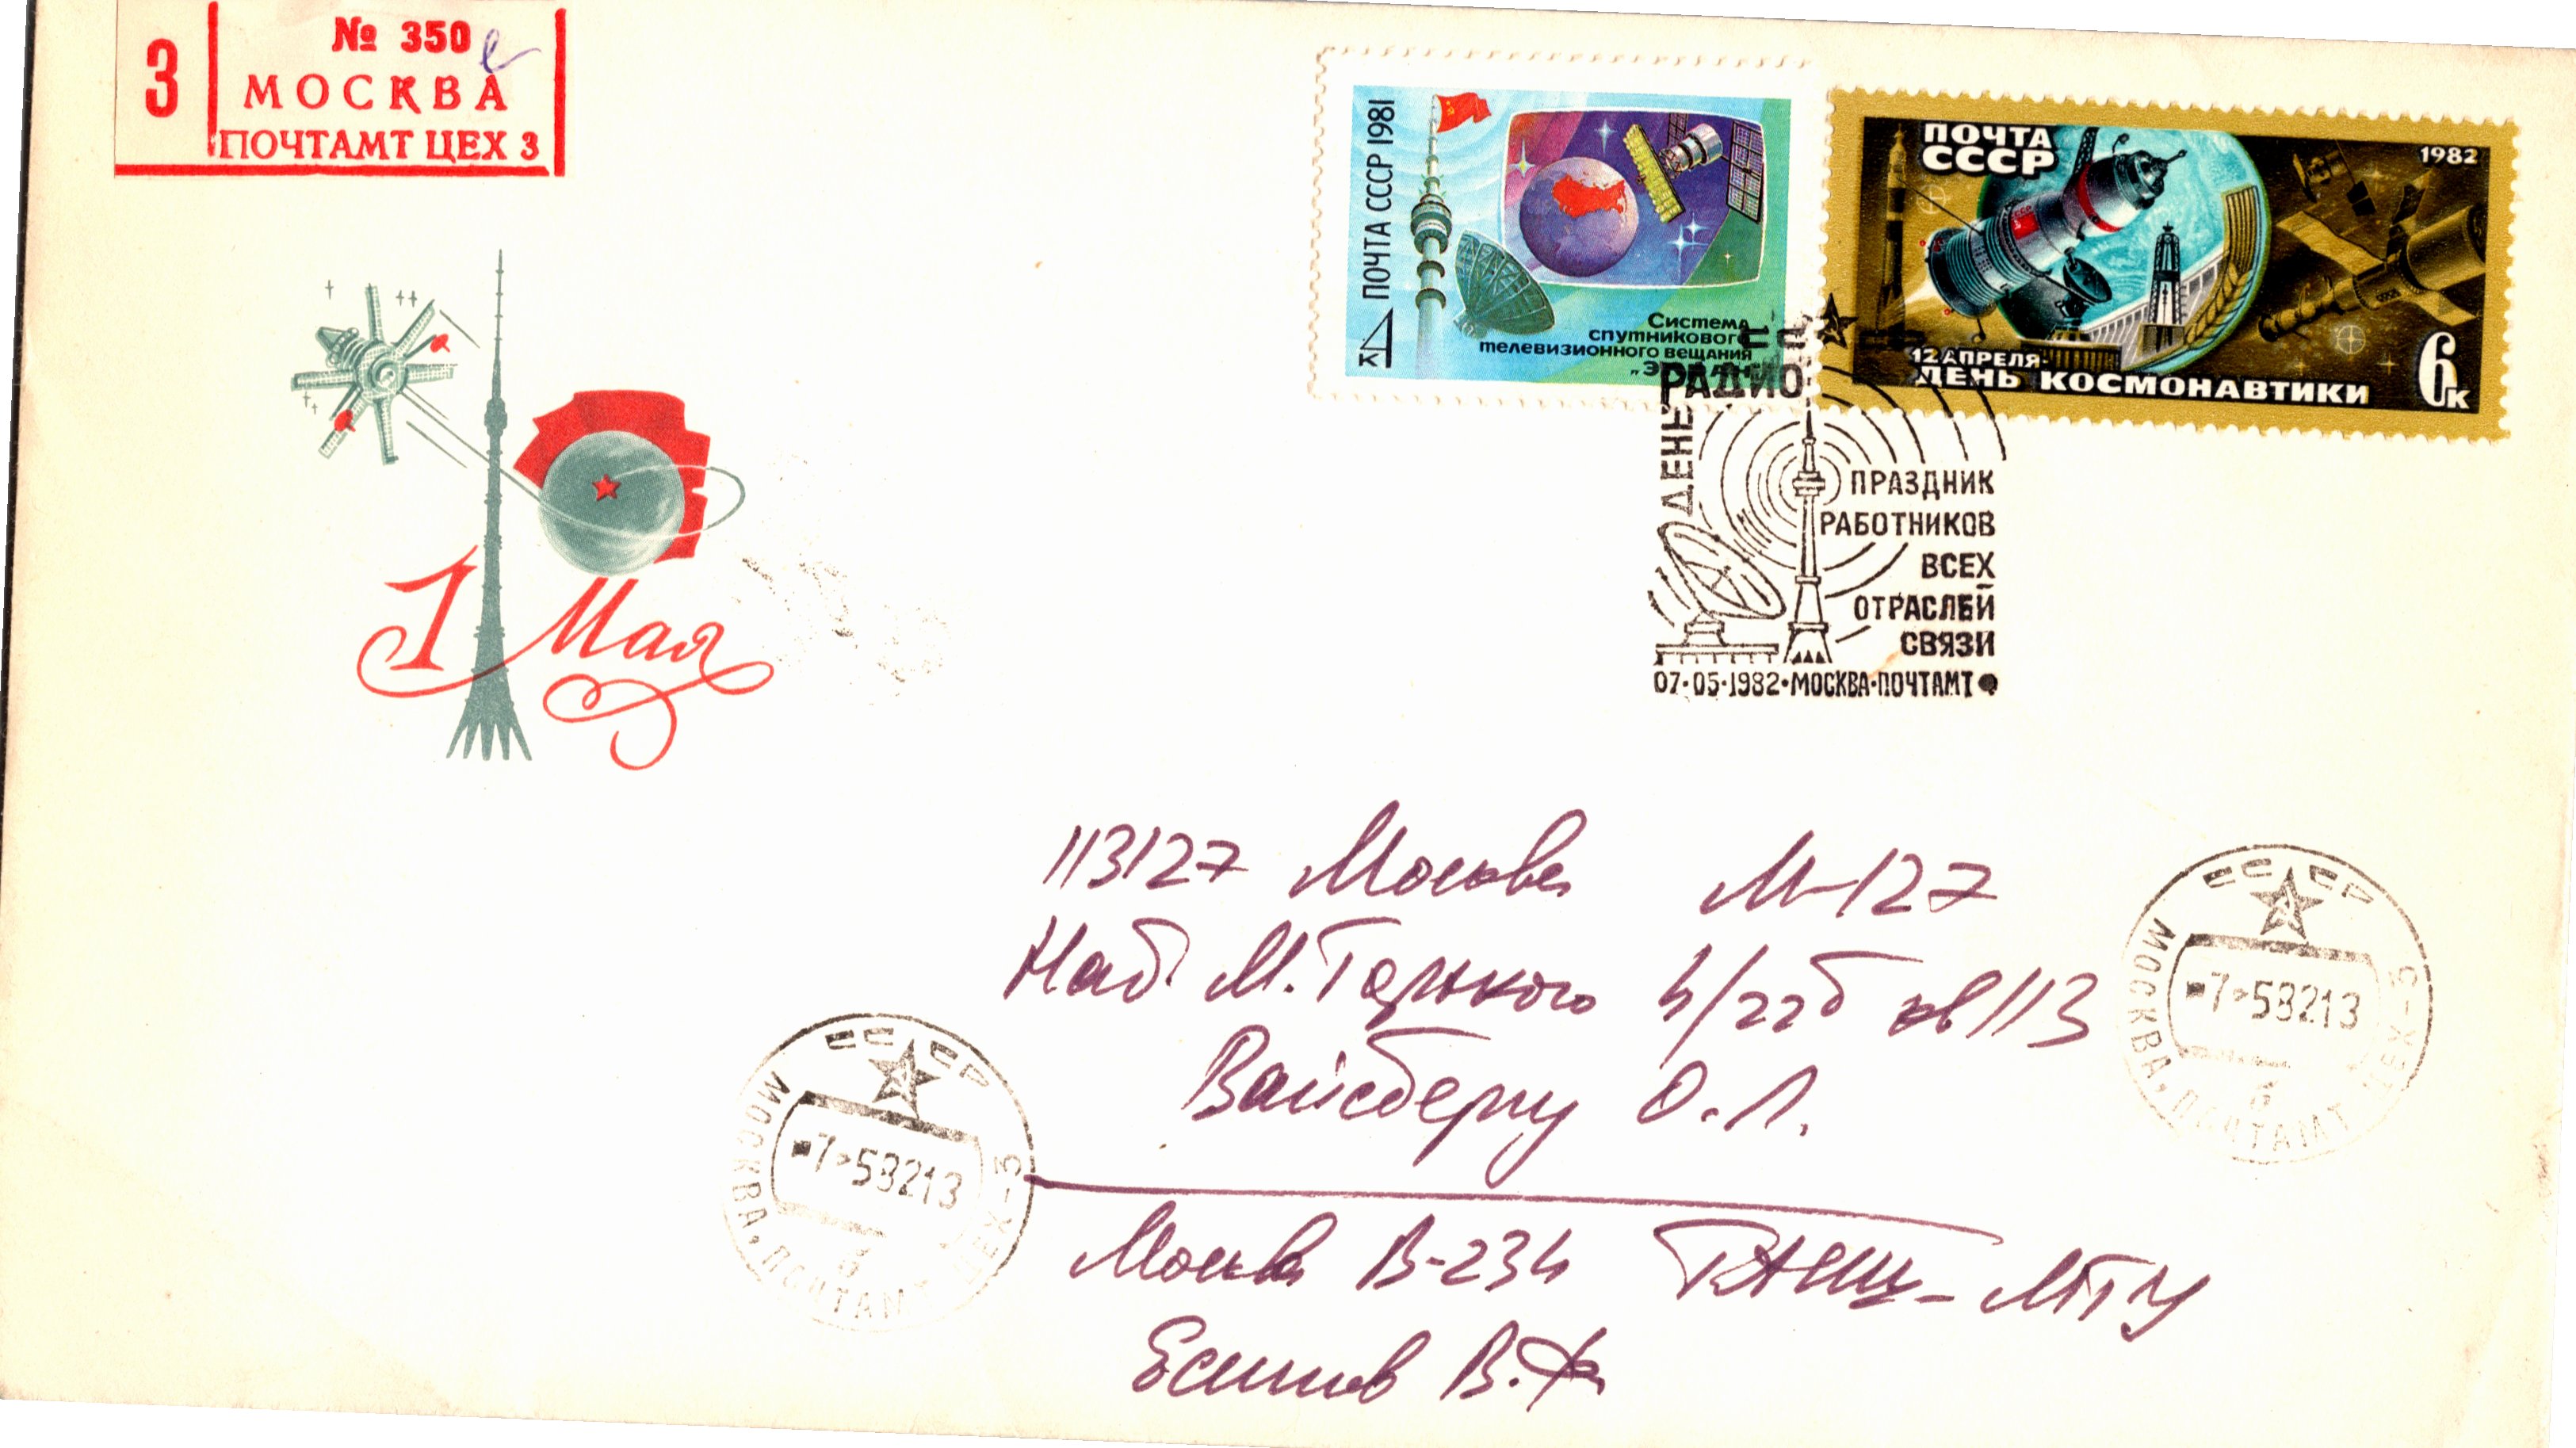 З
№ 350
МОСКВА
ПОЧТАМТ ЦЕХ 3
1 Мая
ПОЧТА СССР 1981
4к
Система
спутникового
телевизионного вещания
ПОЧТА
СССР
1982
12 АПРЕЛЯ-
ДЕНЬ КОСМОНАВТИКИ
6к
ДЕНЬ РАДИО
ПРАЗДНИК
РАБОТНИКОВ
ВСЕХ
ОТРАСЛЕЙ
СВЯЗИ
07·05·1982·МОСКВА·ПОЧТАМТ
113127 Москва М-127
Наб. М. Горького 4/22б кв 113
Вайсбергу О.Л.
СССР
МОСКВА, ПОЧТАМТ ЦЕХ-3
-7-58213
б
СССР
МОСКВА, ПОЧТАМТ ЦЕХ-3
-7-58213
б
Москва В-234 ГАИШ-МГУ
Есипов В.Ф.